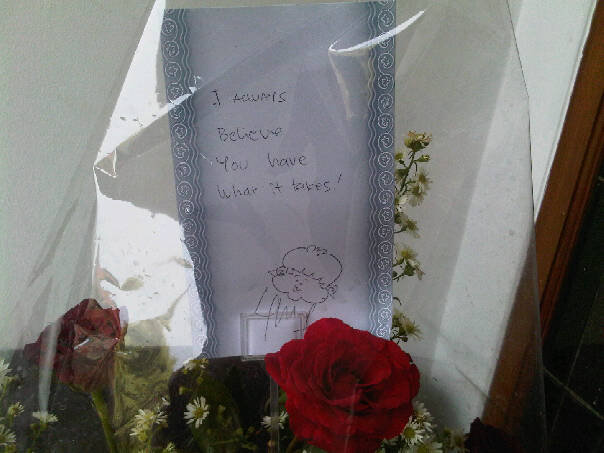 I ALWAYS
Believe
You have
What it takes!